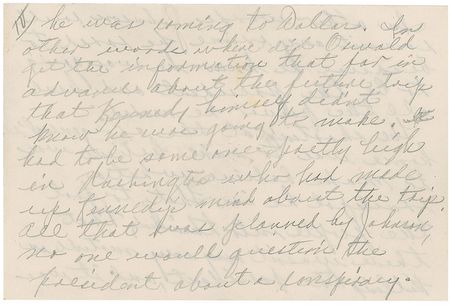 he was coming to Dallas. In
other words where did Oswald
get the information that far in
advance about the future trip
that Kennedy himself didn't
know he was going to make. It
had to be some one pretty high
in Washington who had made
up Kennedy's mind about the trip.
All that was planned by Johnson,
no one would question the
president about a conspiracy.